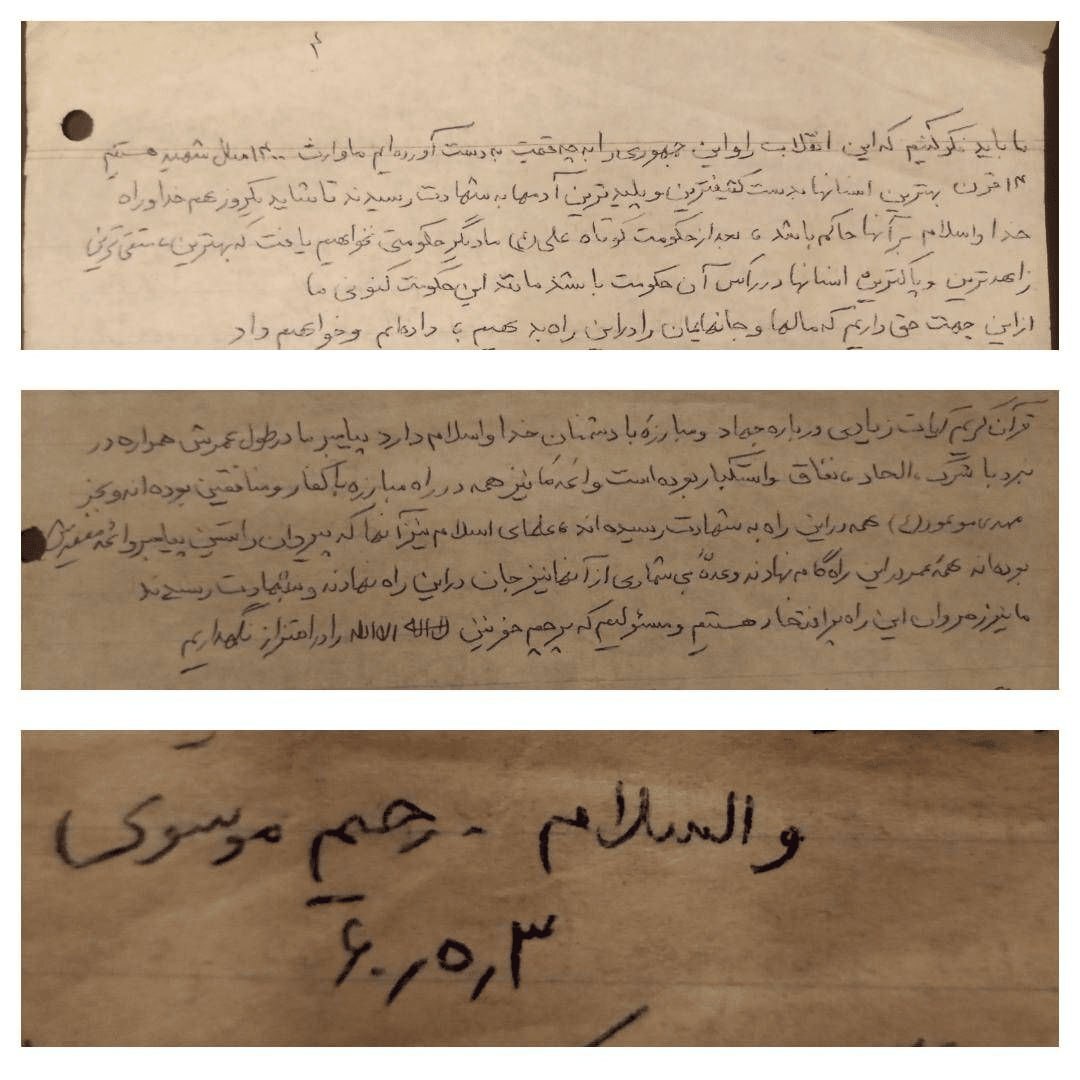 ۴
ما باید نگو کنیم که این انقلاب را و این جمهوری را به چه قمیت به دست آورده‌ایم ما وارث ۱۴۰۰ سال شهید هستیم
۱۴ قرن بهترین انسانها بدست کثیفترین و پلیدترین آدمها به شهادت رسیدند تا شاید یکروز هم خدا و راه
خدا و اسلام بر آنها حاکم باشد، بعد از حکومت کوتاه علی (ع) ما دیگر حکومتی نخواهیم یافت که بهترین، متقی ترین
زاهدترین و پاکترین انسانها در رأس آن حکومت باشند مانند این حکومت کنونی ما
از این جهت حق داریم که مالها و جانهایمان را در این راه بدهیم، داده‌ایم و خواهیم داد
قرآن کریم آیات زیادی درباره جهاد و مبارزهٔ با دشمنان خدا و اسلام دارد پیامبر ما در طول عمرش همواره در
نبرد با شرک، الحاد، نفاق و استکبار بوده است و ائمه ما نیز همه در راه مبارزه با کفار و منافقین بوده‌اند و بجز
مهدی موعود همه در این راه به شهادت رسیده اند، علمای اسلام نیز آنها که پیروان راستین پیامبر و ائمه
بوده‌اند همهٔ عمر در این راه گام نهادند و عدهٔ بی شماری از آنها نیز جان در این راه نهادند و بشهادت رسیدند
ما نیز رهروان این راه پر افتخار هستیم و مسئولیم که پرچم خونین لااله الاالله را در اهتزاز نگهداریم
والسلام - رحیم موسوی
۶۰٫۵٫۳